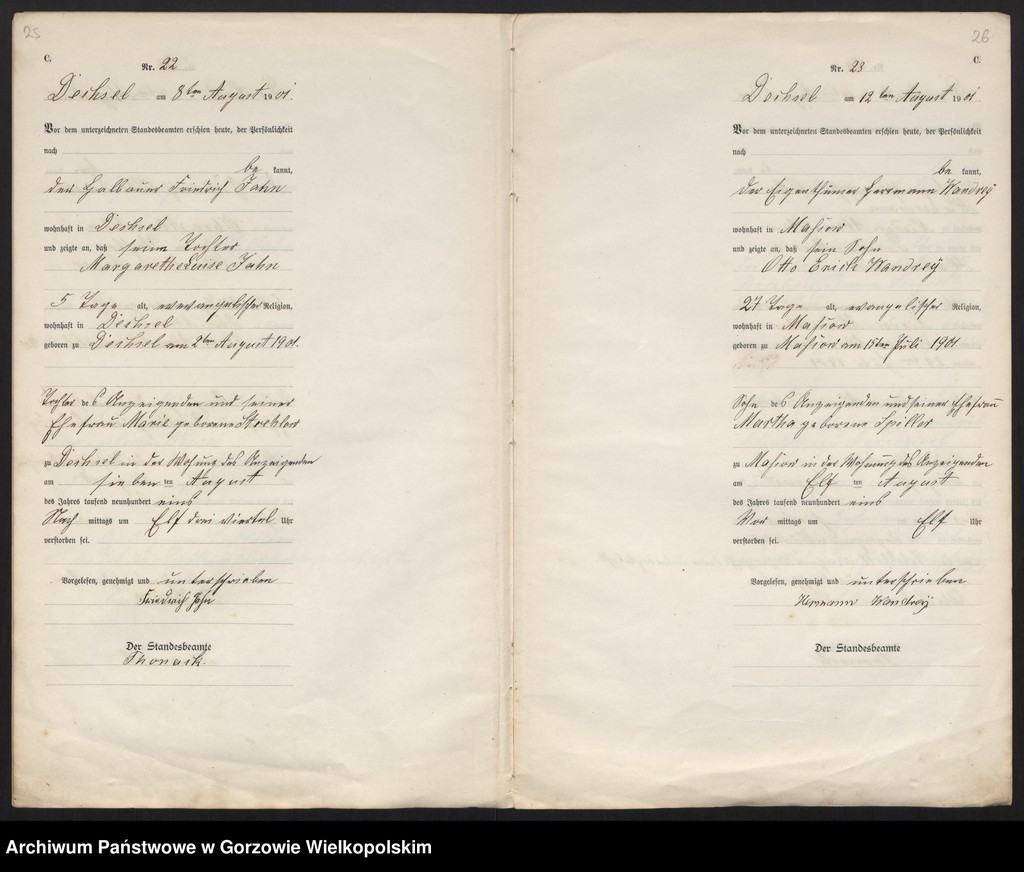 25
C.
Nr. 22
Dechsel am 8ten August 1901.
Vor dem unterzeichneten Standesbeamten erschien heute, der Persönlichkeit
nach
be kannt,
der Halbauer Friedrich Jahn
wohnhaft in Dechsel
und zeigte an, daß seine Tochter
Margarethe Luise Jahn
5 Tage alt, evangelischer Religion,
wohnhaft in Dechsel
geboren zu Dechsel am 2ten August 1901.
Tochter des Anzeigenden und seiner
Ehefrau Marie geborene Strehlow
zu Dechsel in der Wohung des Anzeigenden
am sieben ten August
des Jahres tausend neunhundert eins
Nach mittags um Elf drei viertel Uhr
verstorben sei.
Vorgelesen, genehmigt und unterschrieben
Friedrich Jahn
Der Standesbeamte
Thonack.
26
C.
Nr. 23
Dechsel am 12ten August 1901.
Vor dem unterzeichneten Standesbeamten erschien heute, der Persönlichkeit
nach
be kannt,
der Eigenthümer Herrmann Wandrey
wohnhaft in Massow
und zeigte an, daß sein Sohn
Otto Erich Wandrey
27 Tage alt, evangelischer Religion,
wohnhaft in Massow
geboren zu Massow am 15ten Juli 1901.
Sohn des Anzeigenden und seiner Ehefrau
Martha geborene Spiller
zu Massow in der Wohnung des Anzeigenden
am Elf ten August
des Jahres tausend neunhundert eins
Vor mittags um Elf Uhr
verstorben sei.
Vorgelesen, genehmigt und unterschrieben
Hermann Wandrey
Der Standesbeamte
Archiwum Państwowe w Gorzowie Wielkopolskim